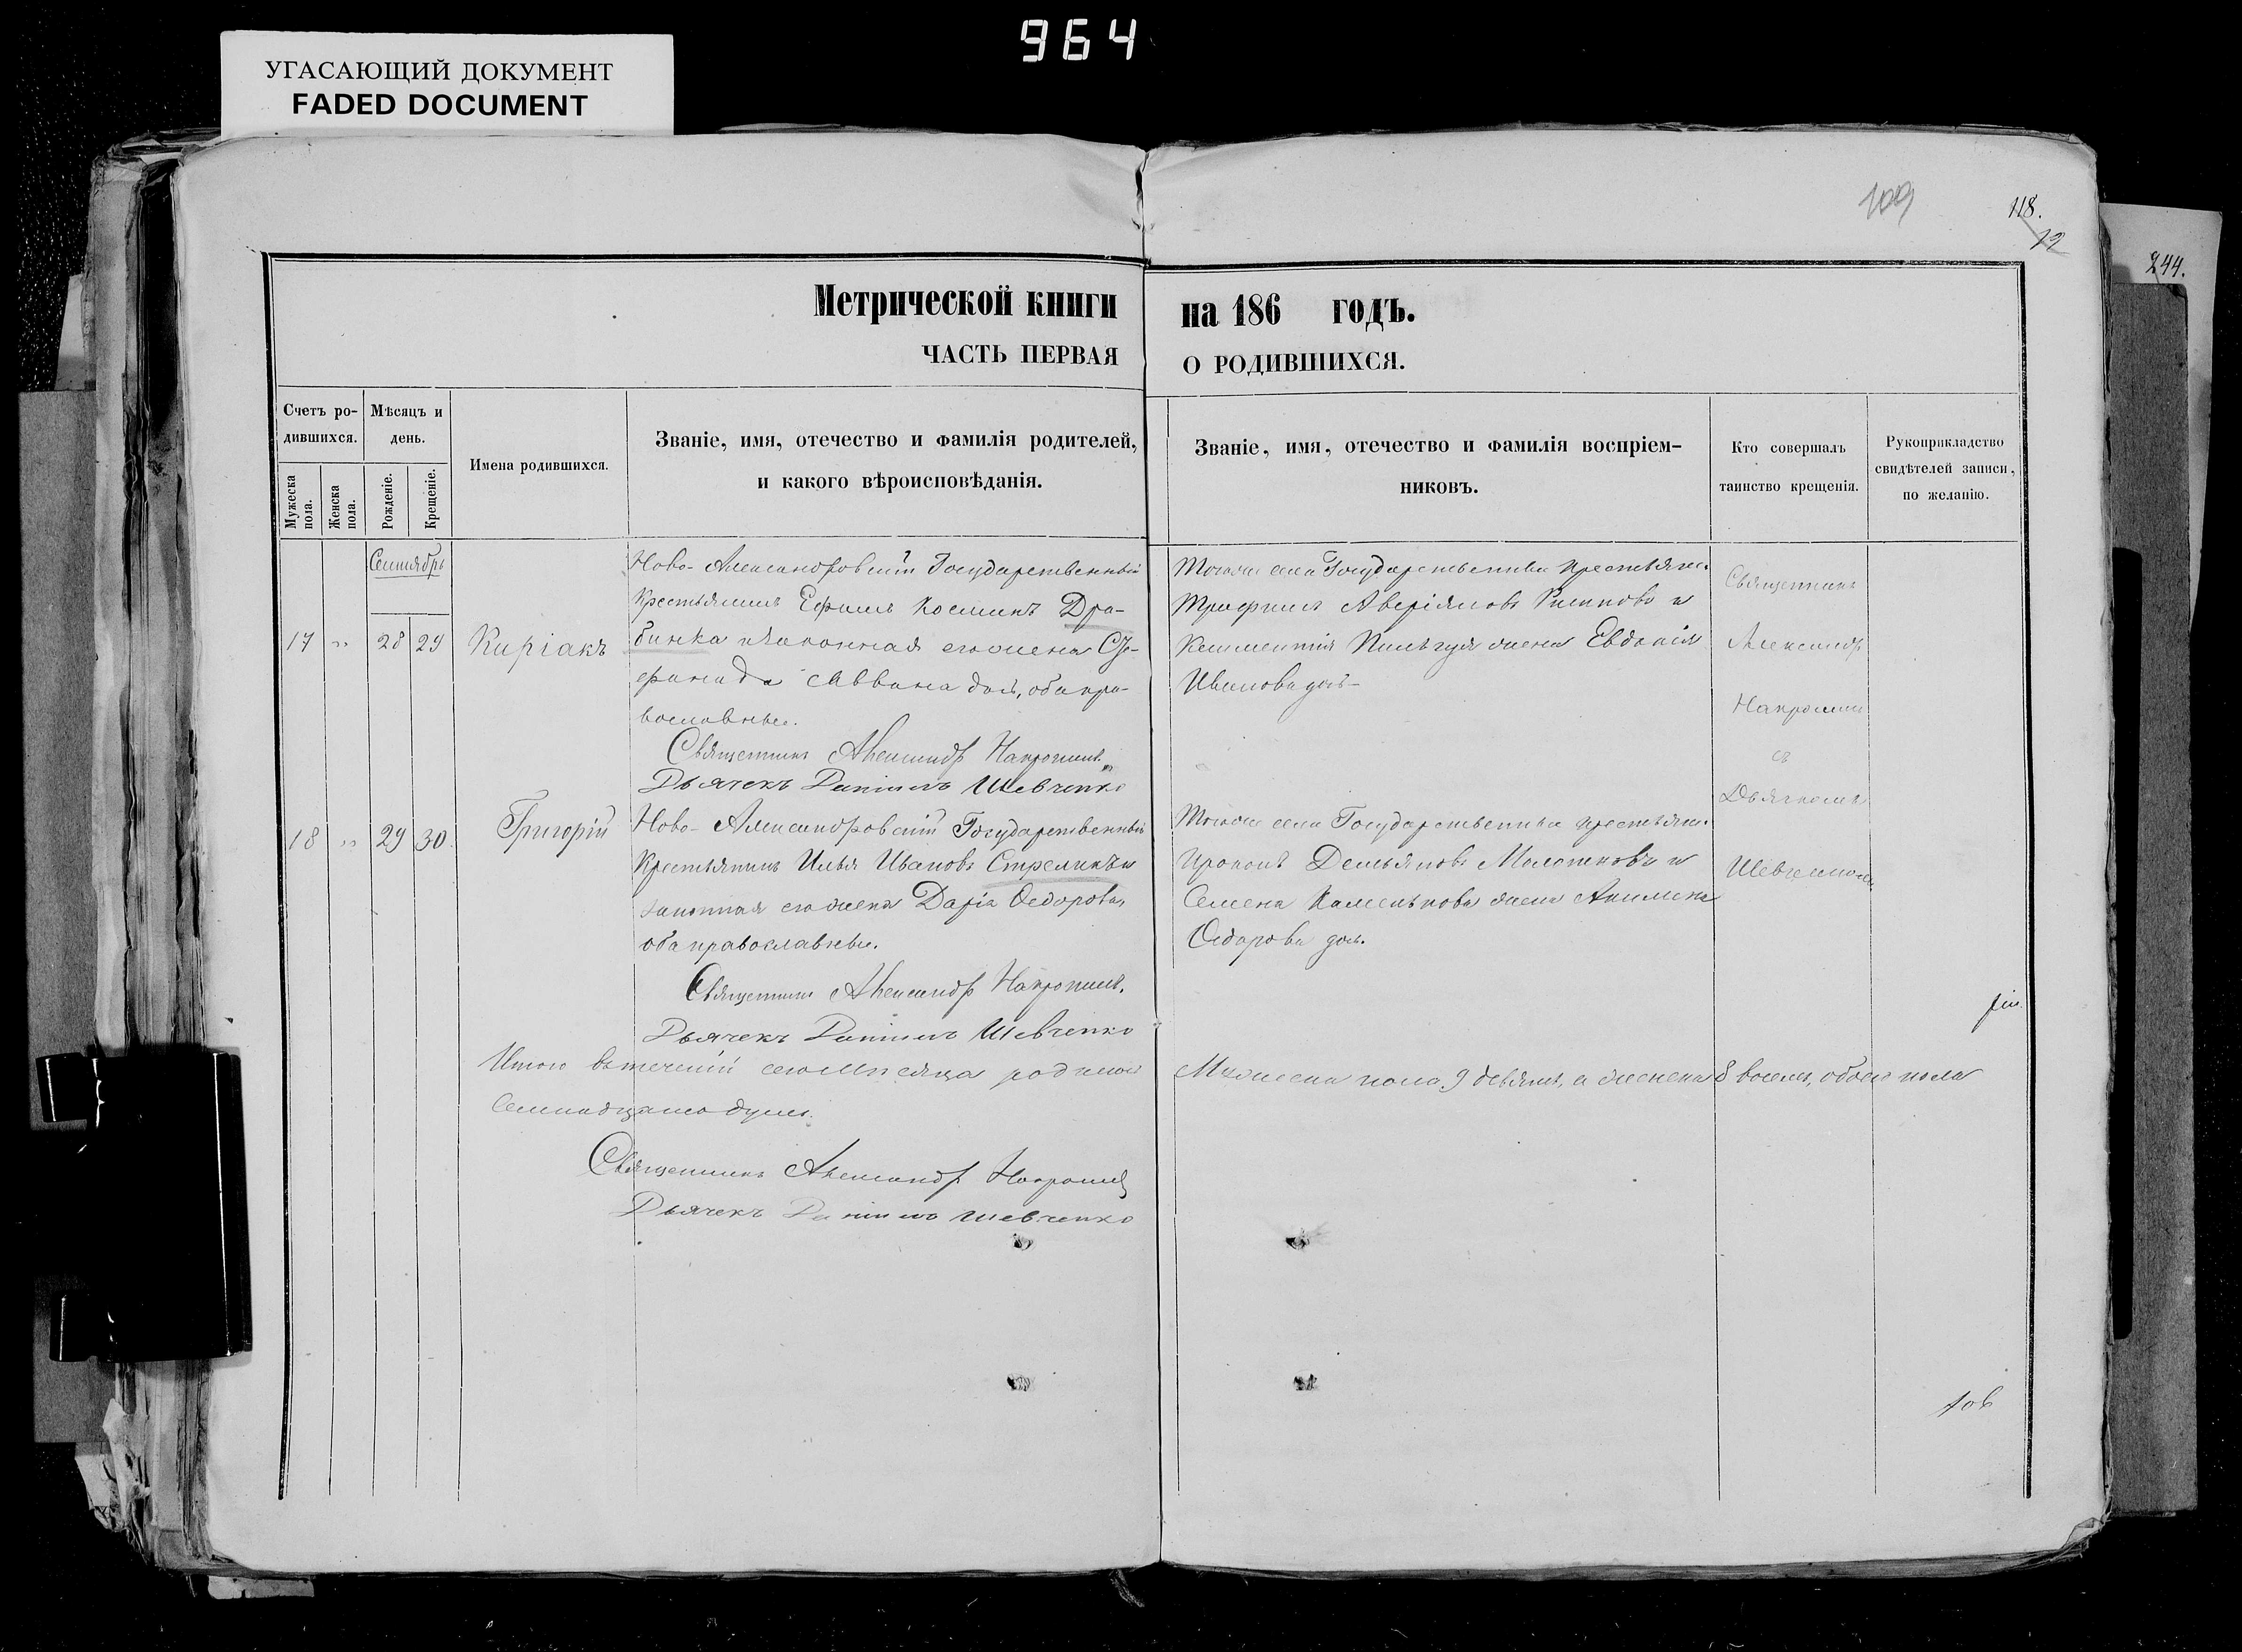 964
УГАСАЮЩИЙ ДОКУМЕНТ
FADED DOCUMENT
109
118.
12
244.
Метрической книги на 186 годъ.
ЧАСТЬ ПЕРВАЯ О РОДИВШИХСЯ.
Счетъ ро-
дившихся.
Мужеска
пола.
Женска
пола.
Мѣсяцъ и
день.
Рожденіе.
Крещеніе.
Имена родившихся.
Званіе, имя, отечество и фамилія родителей,
и какого вѣроисповѣданія.
Званіе, имя, отечество и фамилія воспріем-
никовъ.
Кто совершалъ
таинство крещенія.
Рукоприкладство
свидѣтелей записи,
по желанію.
Сентябрь
17 " 28 29 Киріакъ
Ново-Александровскій Государственный
Крестьянинъ Ефимъ Косминъ Дра-
бинка и законная его жена Сте-
фанида Саввина дочь, оба пра-
вославные.
Священникъ Александр
Дьячекъ Даніилъ Шевченко
Тогоже села Государственный крестьянинъ
Трофимъ Аверіяновъ и
жена Евдокія
Иванова дочь
Священникъ
Александр
съ
Дьячкомъ
Шевченкомъ
18 " 29 30 Григорій
Ново-Александровскій Государственный
Крестьянинъ Илья Ивановъ и
законная его жена Дарія Федорова,
оба православные.
Священникъ Александр
Дьячекъ Даніилъ Шевченко
Тогоже села Государственный крестьянинъ
Демьяновъ и
Семена жена Акилина
Федорова дочь.
Итого втеченіи сего мѣсяца родилось Мужеска пола 9 девять, а женска 8 восемь, обоего пола
Семнадцать душъ.
Священникъ Александр
Дьячекъ Даніилъ Шевченко